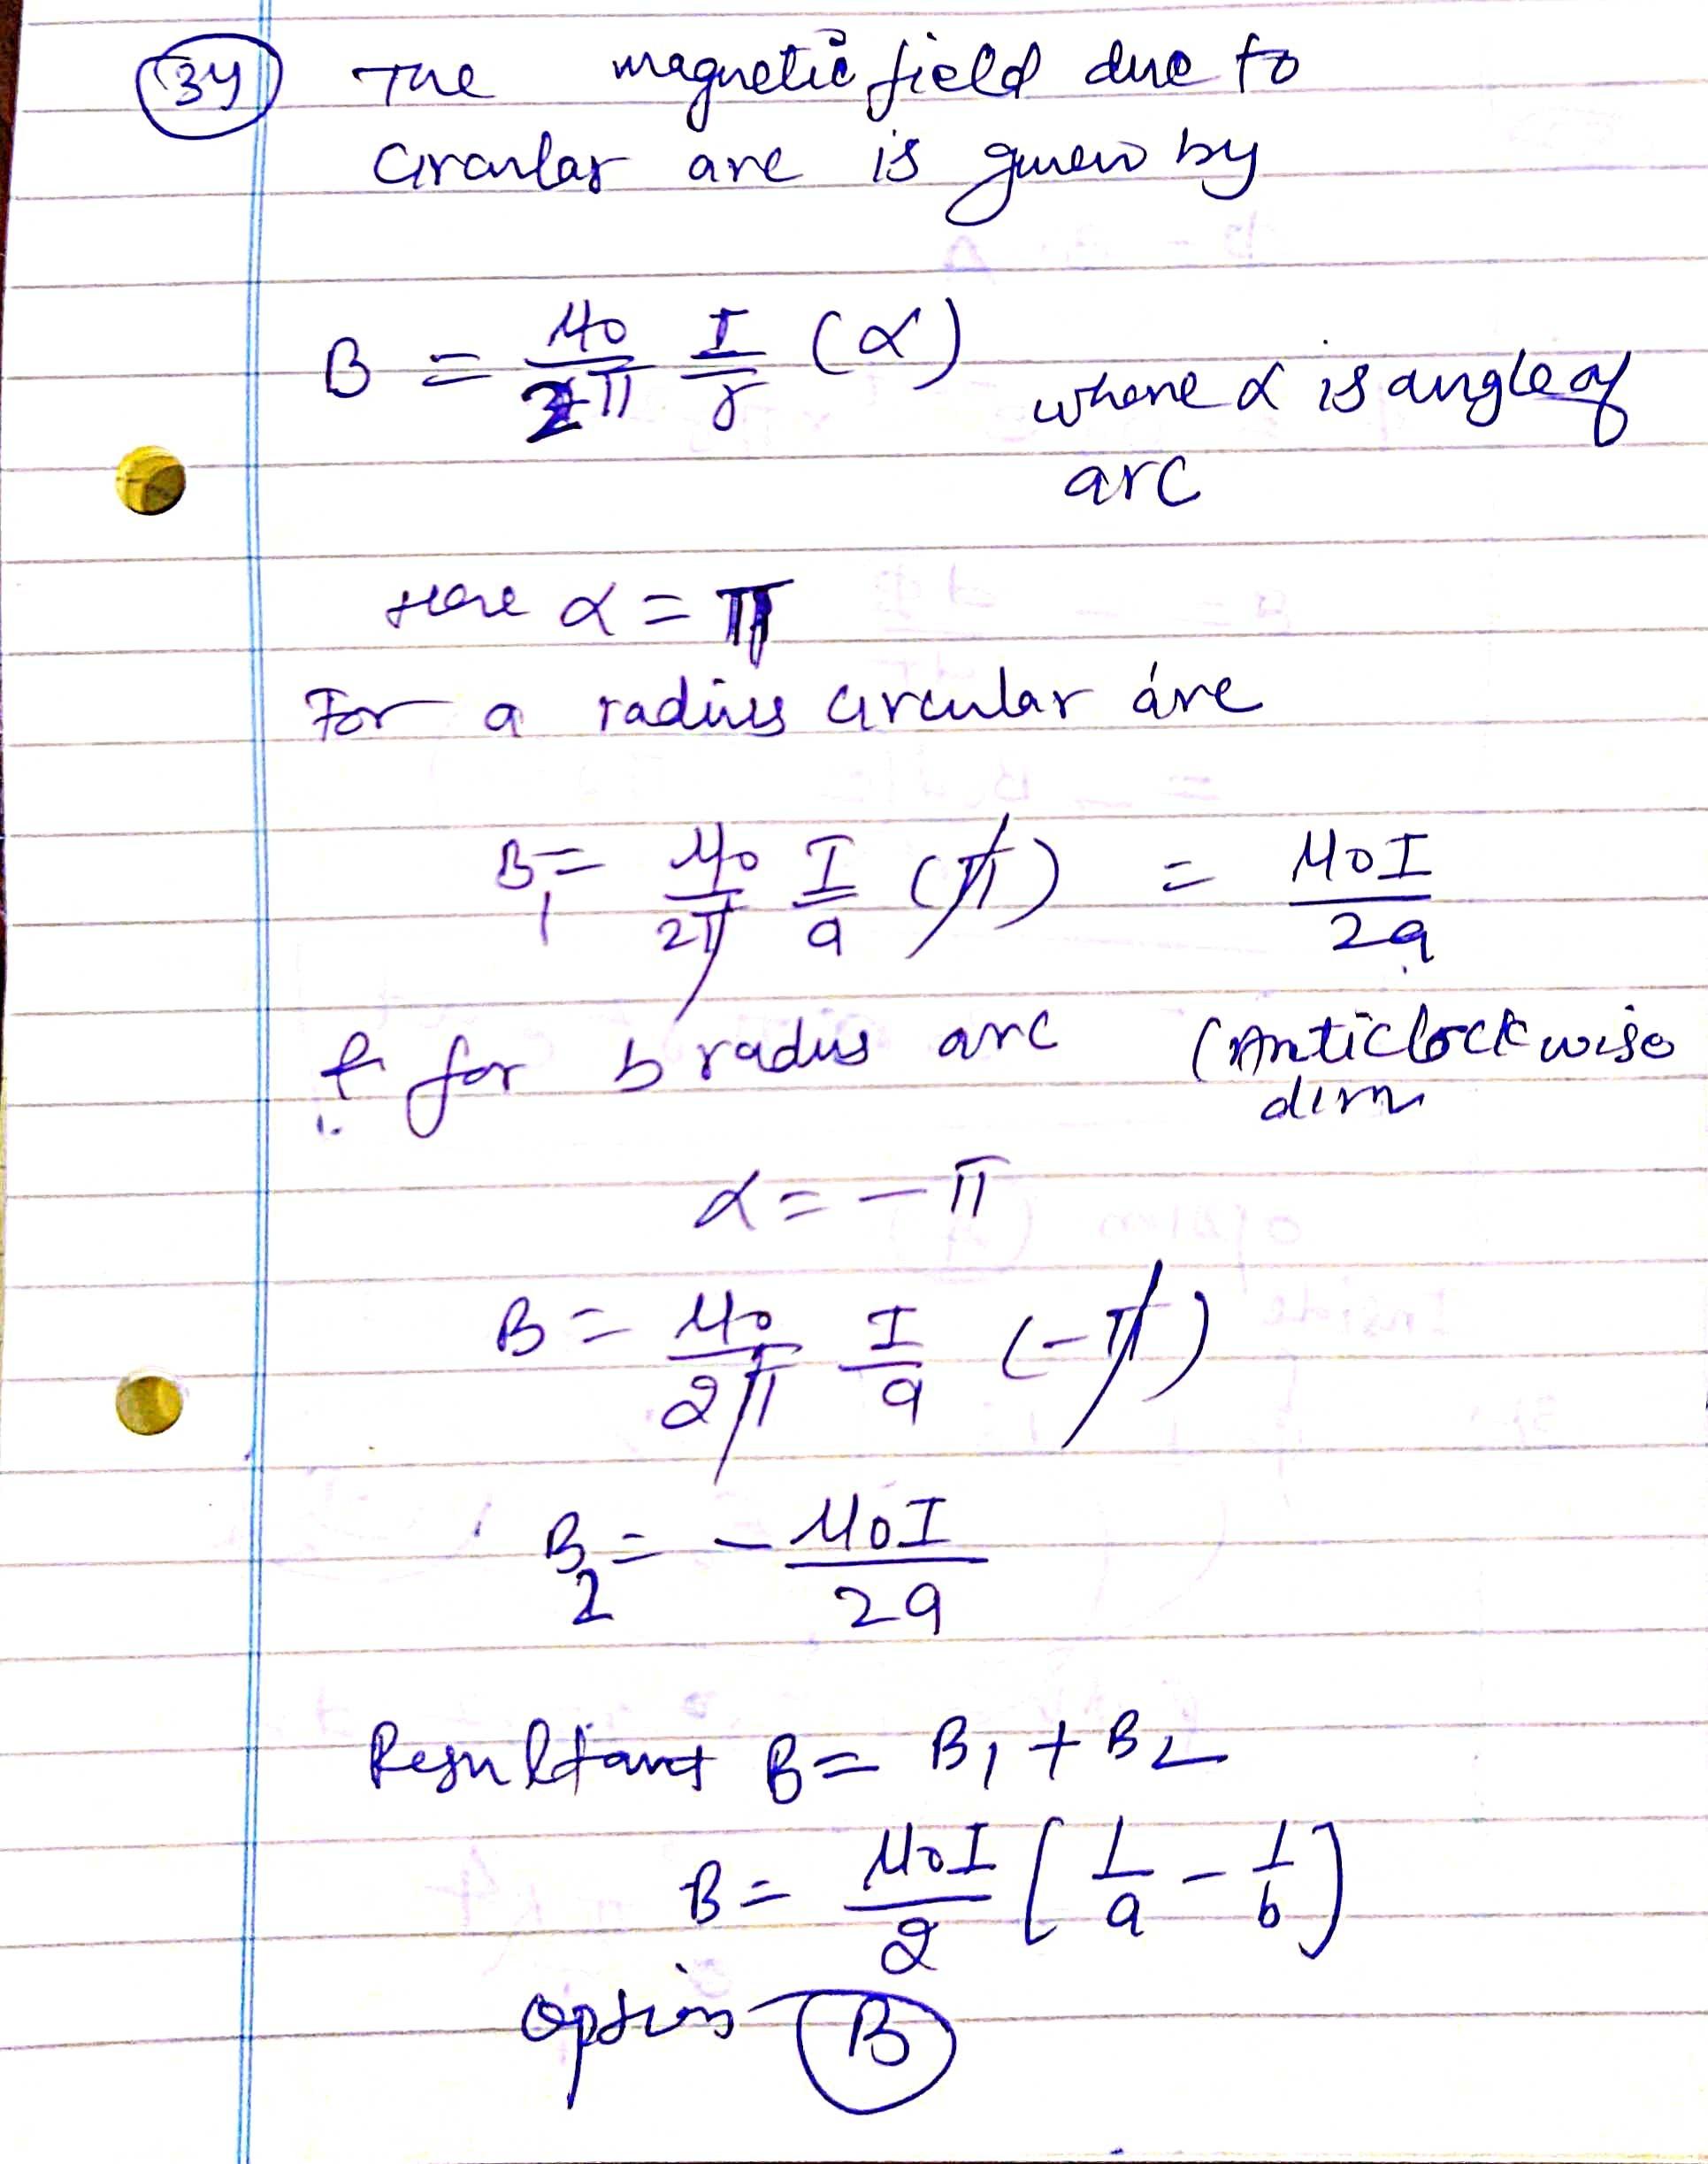 (34) The magnetic field due to
circular arc is given by
B = μ0/2π I/r (α)
where α is angle of
arc
Here α = π
For a radius circular arc
B1 = μ0/2π I/a (π) = μ0I/2a
& for b radius arc (Anticlockwise
dirn
α = -π
B = μ0/2π I/a (-π)
B2 = - μ0I/2a
Resultant B = B1 + B2
B = μ0I/2 [1/a - 1/b]
option (B)